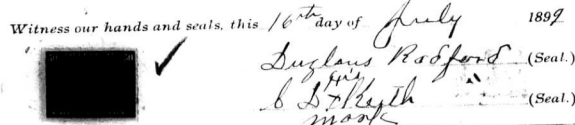 Witness our hands and seals, this 16th day of July 1899
Duglaus Radford (Seal.)
his
C D + Keith (Seal.)
mark